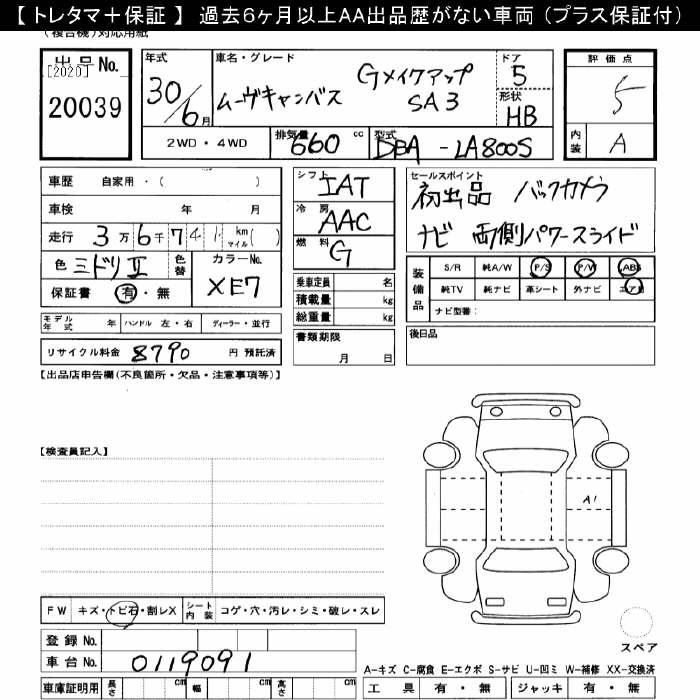 【トレタマ＋保証】 過去6ヶ月以上AA出品歴がない車両（プラス保証付）
(複合機)対応用紙
出品No.
[2020]
20039
年式
30/6月
車名・グレード
ムーヴキャンバス
Gメイクアップ
SA3
ドア
5
形状
HB
評価点
5
内装
A
2WD・4WD
排気量
660 cc
型式
DBA - LA800S
車歴 自家用・( )
車検 年 月
走行 3万6千741 km マイル( )
色 ミドリⅡ
色替
カラーNo.
XE7
保証書 有・無
シフト
IAT
冷房
AAC
燃料
G
セールスポイント
初出品 バックカメラ
ナビ 両側パワースライド
乗車定員 名
積載量 kg
総重量 kg
書類期限
月 日
装備品
S/R 純A/W P/S P/W ABS
純TV 純ナビ 革シート 外ナビ エアB
ナビ型番：
後日品
モデル年式 年 ハンドル 左・右 ディーラー・並行
リサイクル料金 8790 円 預託済
【出品店申告欄(不良箇所・欠品・注意事項等)】
【検査員記入】
A1
FW キズ・トビ石・割レX シート内装 コゲ・穴・汚レ・シミ・破レ・スレ
登録No.
車台No. 0119091
スペア
A-キズ C-腐食 E-エクボ S-サビ U-凹ミ W-補修 XX-交換済
車庫証明用 長さ cm 幅 cm 高さ cm
工具 有・無 ジャッキ 有・無